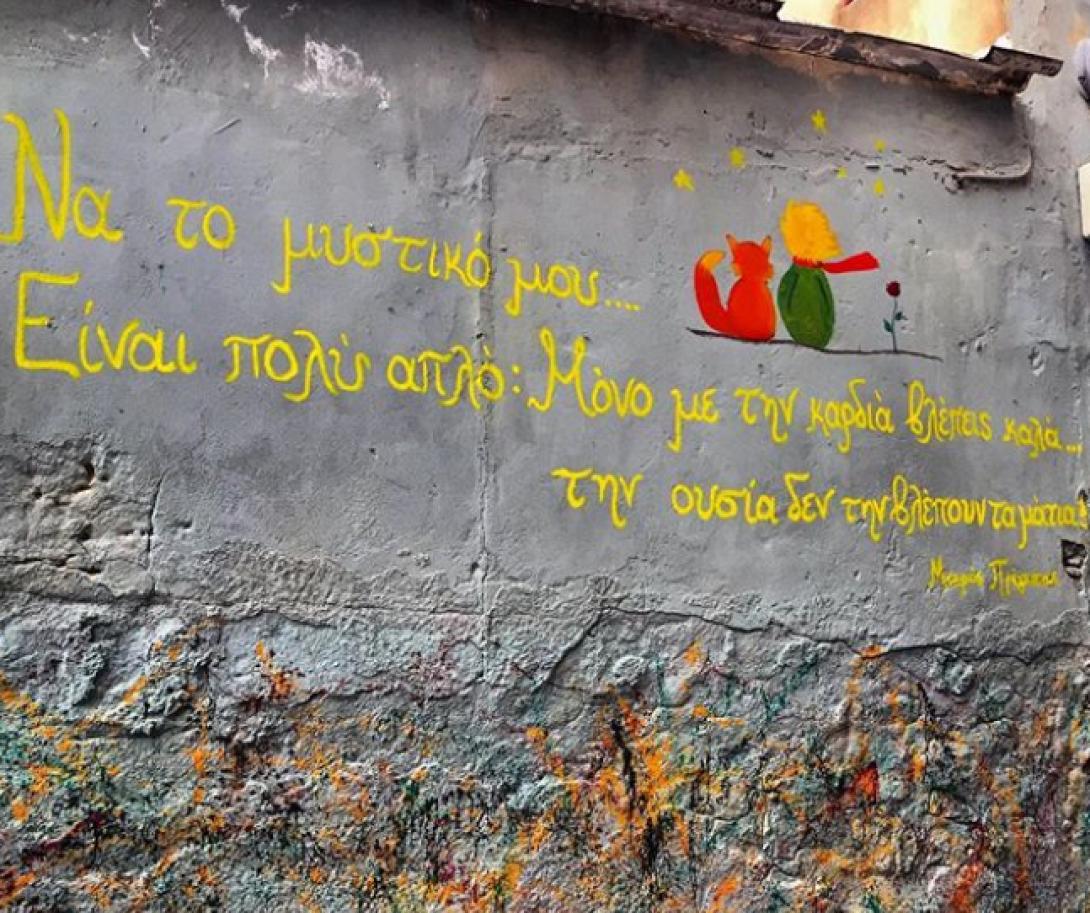 Να το μυστικό μου....
Είναι πολύ απλό: Μόνο με την καρδιά βλέπεις καλά...
την ουσία δεν την βλέπουν τα μάτια!
Μικρός Πρίγκιπας